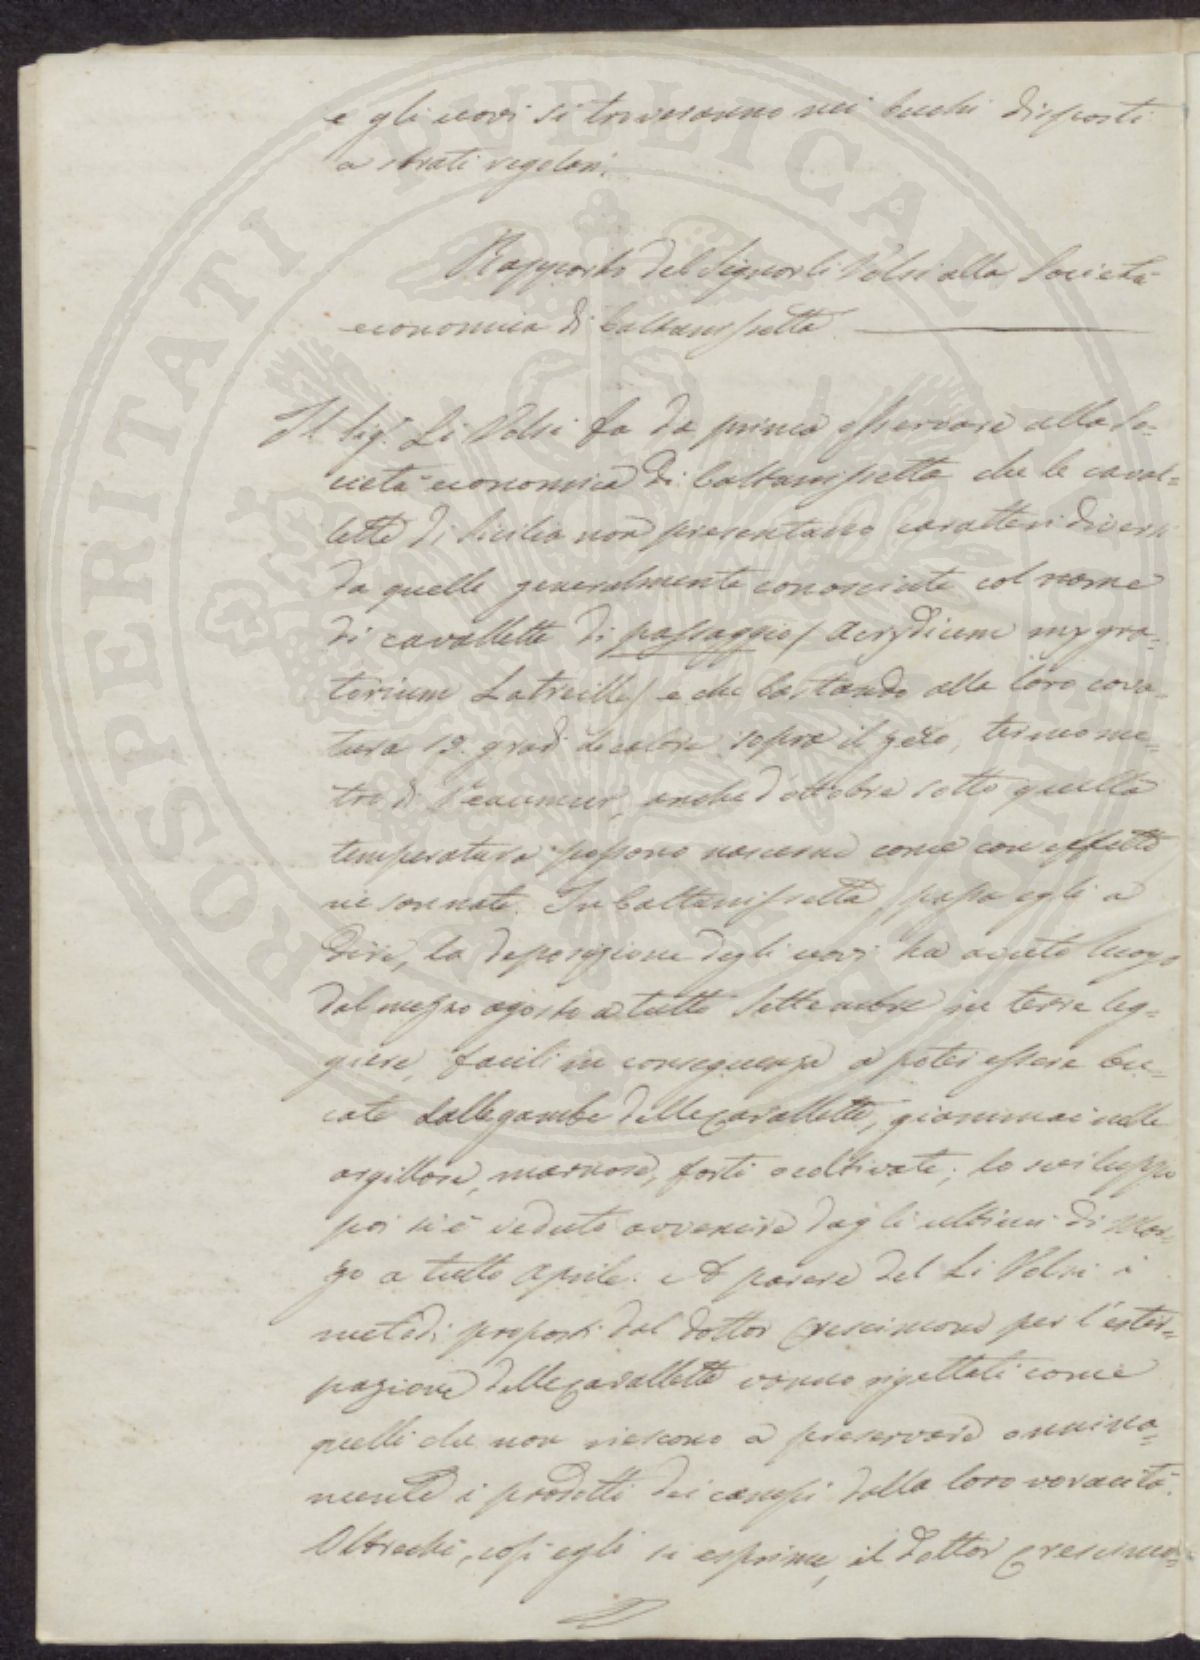 e gli uovi si troveranno nei buchi disposti
a strati regolari.
Rapporto del Signor Li Volsi alla Società
economica di Caltanissetta
Il Sig.r Li Volsi fa da prima osservare alla So-
cietà economica di Caltanissetta che le caval-
lette di Sicilia non presentano caratteri diversi
da quelle generalmente conosciute col nome
di cavallette di passaggio / Acrydium mygra-
torium Latreille / e che bastando alla loro cova-
tura 19. gradi di calore sopra il zero, termome-
tro di Reaumur, anche d'ottobre sotto quella
temperatura possono nascerne come con effetto
ne son nate. In Caltanissetta, passa egli a
dire, la deposizione degli uovi ha avuto luogo
dal mezzo agosto a tutto Settembre in terre leg-
giere, facili in conseguenza a poter essere bu-
cate dalle gambe delle cavallette, giammai nelle
argillose, marnose, forti o coltivate; lo sviluppo
poi si è veduto avvenire dagli ultimi di Mar-
zo a tutto Aprile. A parere del Li Volsi i
metodi proposti dal dottor Crescimone per l'ester-
pazione delle cavallette vanno rigettati come
quelli che non riescono a preservare onnina-
mente i prodotti dei campi dalla loro voracità.
Oltreché, così egli si esprime, il dottor Crescimo-
ROSPERITATI PUBLICAE AUGENDAE